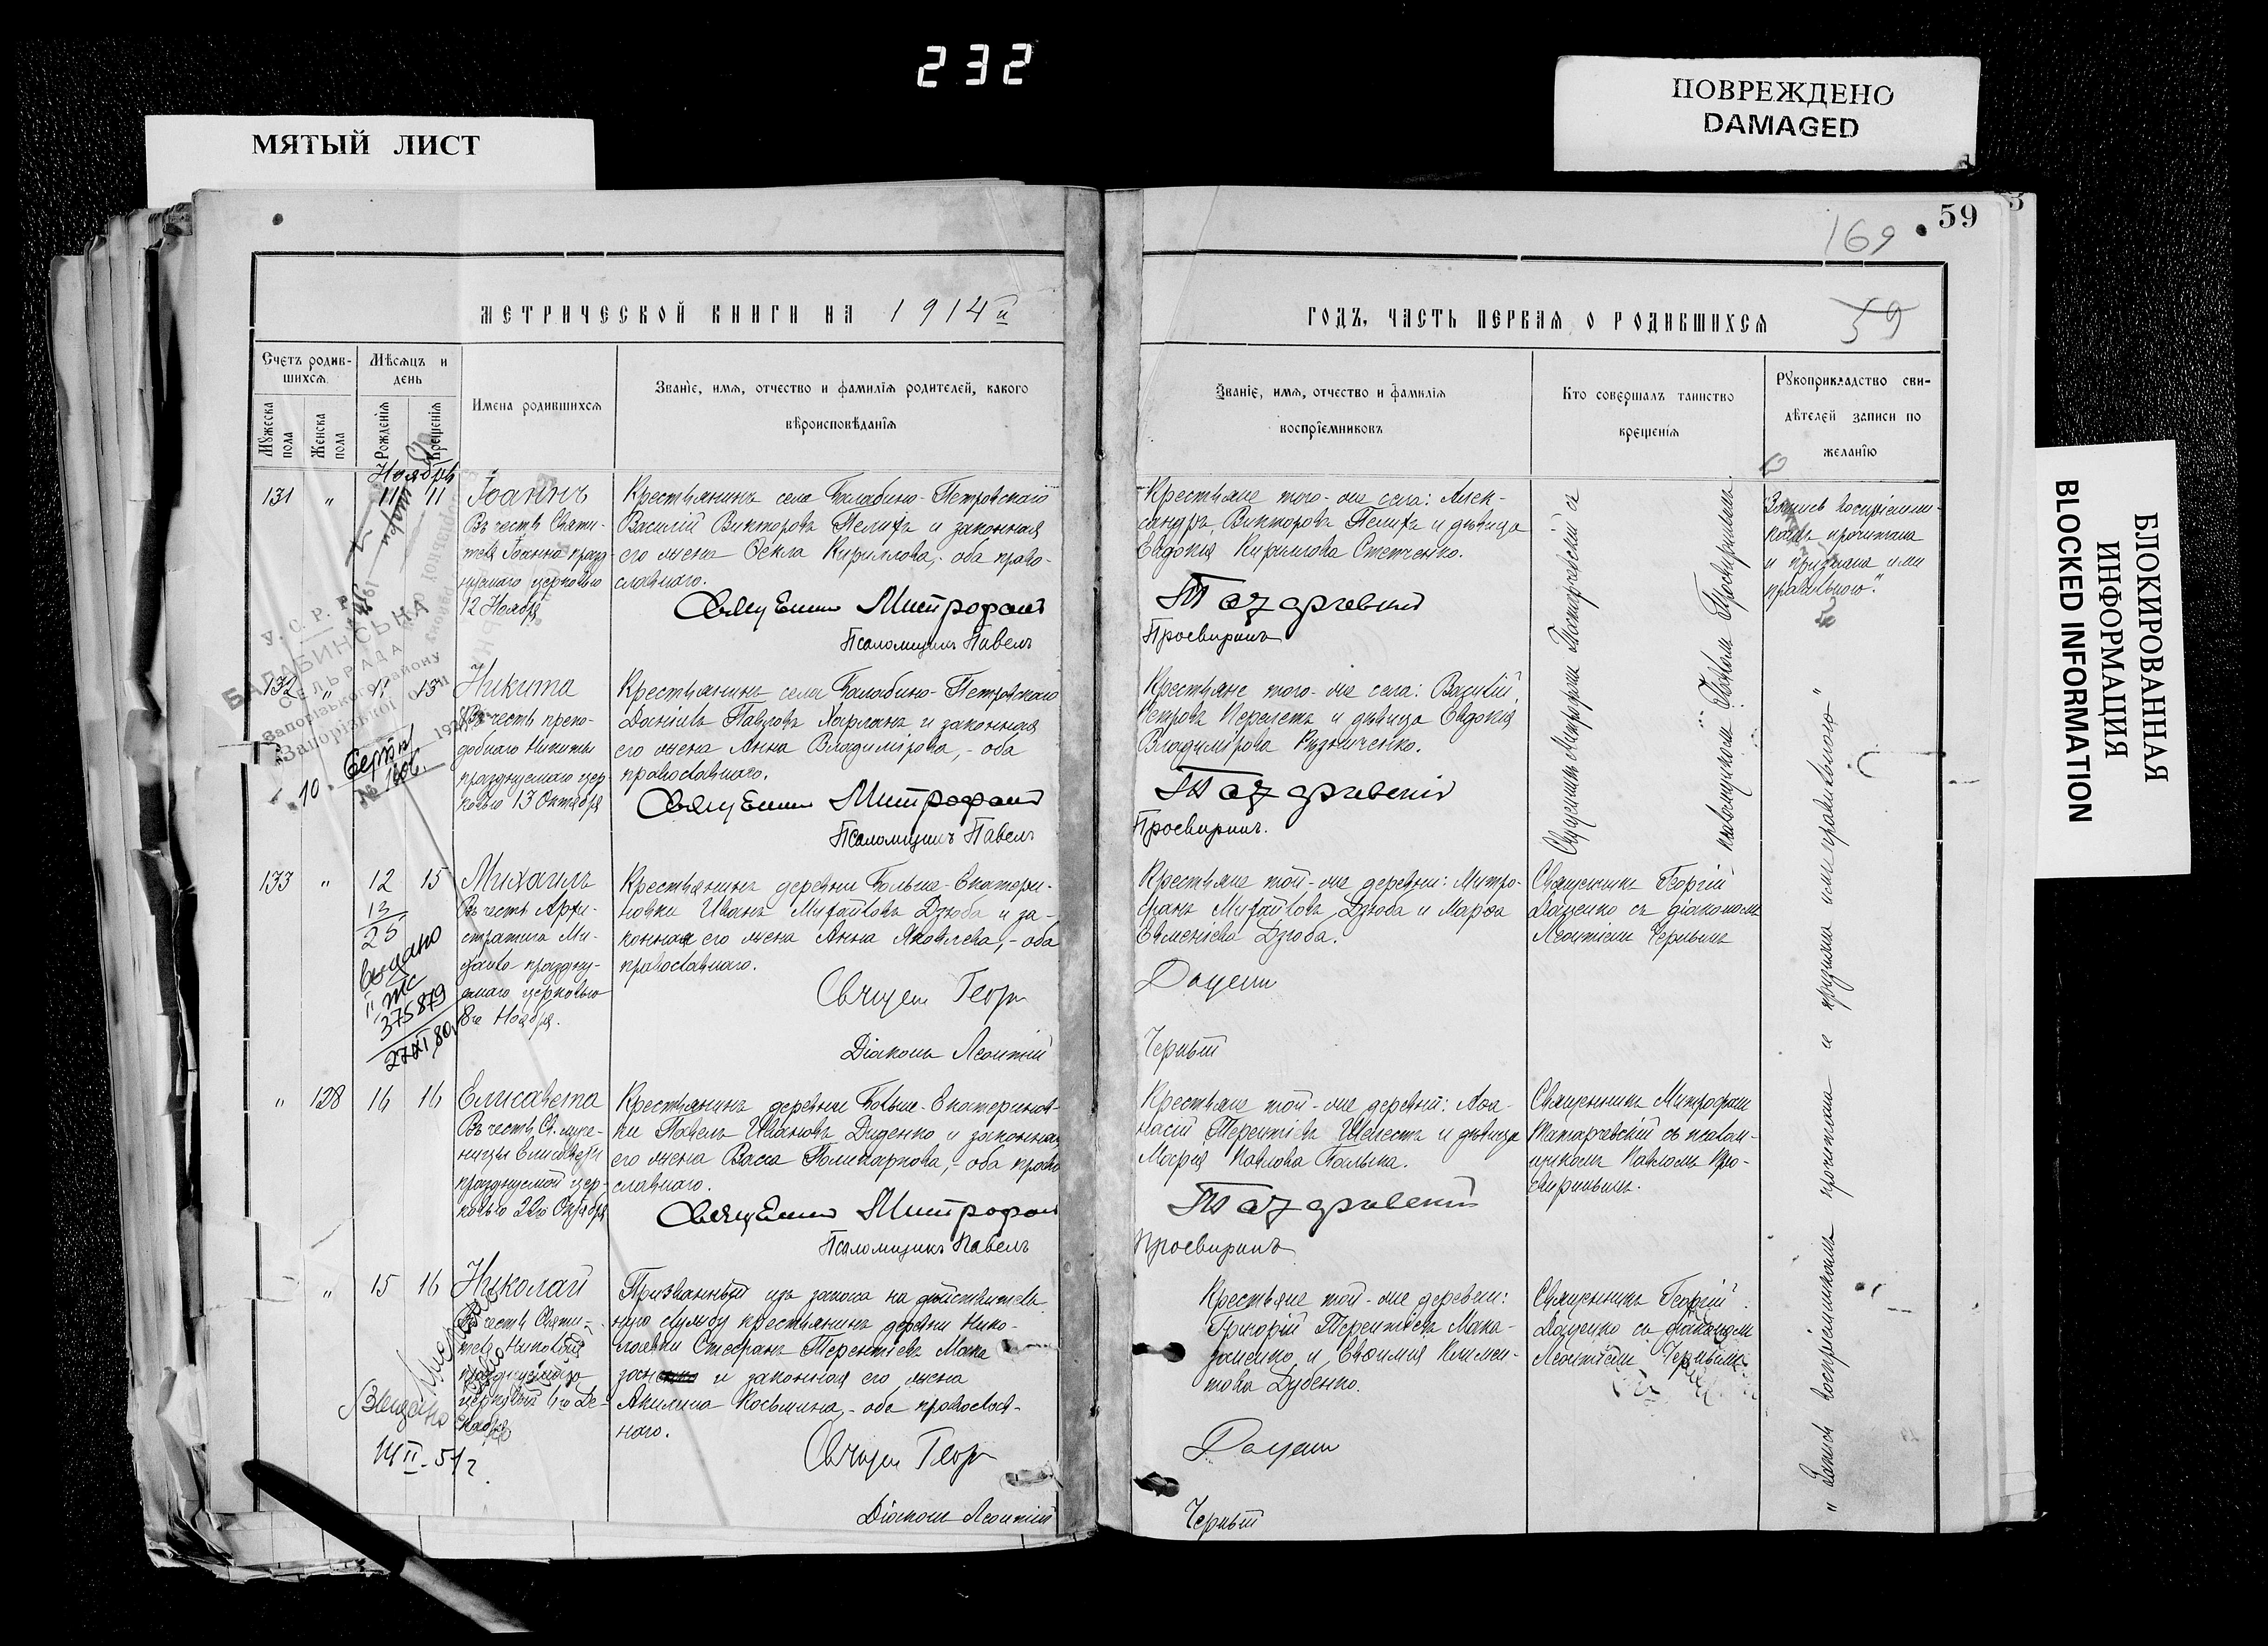 232
МЯТЫЙ ЛИСТ
ПОВРЕЖДЕНО
DAMAGED
БЛОКИРОВАННАЯ
ИНФОРМАЦИЯ
BLOCKED INFORMATION
59
169
МЕТРИЧЕСКОЙ КНИГИ НА 1914й
ГОДЪ, ЧАСТЬ ПЕРВАЯ, О РОДИВШИХСЯ
59
Счетъ родив-
шихся
Мужеска пола
Женска пола
Мѣсяцъ и
день
Рожденія
Крещенія
Имена родившихся
Званіе, имя, отчество и фамилія родителей, какого
вѣроисповѣданія
Званіе, имя, отчество и фамилія
воспріемниковъ
Кто совершалъ таинство
крещенія
Рукоприкладство сви-
дѣтелей записи по
желанію
Ноябрь
131 " 11 11
Іоаннъ
Въ честь Святи-
теля Іоанна празд-
нуемаго церковью
12 Ноября
Крестьянинъ села Балабино-Петровскаго
Василій Викторовъ Пелихъ и законная
его жена Ѳекла Кириллова, - оба право-
славнаго.
Священник Митрофанъ
Псаломщикъ Павелъ
Крестьяне того-же села: Алек-
сандръ Викторовъ Пелихъ и дѣвица
Евдокія Кириллова Степченко.
Татаревскій
Просвиринъ
Священникъ Митрофанъ Татаревскій съ
псаломщикомъ Павломъ Просвиринымъ
"Запись воспріемни-
камъ прочитана
и признана ими
правильною".
У. С. Р. Р.
БАЛАБИНСЬКА
СЕЛЬРАДА
Запорізького району
Запорізької
10 Серпня
№ 1606
132 " 11 13
Никита
Въ честь препо-
добнаго Никиты
празднуемаго цер-
ковью 13 Октября
Крестьянинъ села Балабино-Петровскаго
Даніилъ Павловъ Харланъ и законная
его жена Анна Владимірова, - оба
православнаго.
Священник Митрофанъ
Псаломщикъ Павелъ
Крестьяне того-же села: Василій
Петровъ Перепеть и дѣвица Евдокія
Владимірова Кузниченко.
Татаревскій
Просвиринъ.
133 " 12 15
Михаилъ
Въ честь Архи-
стратига Ми-
хаила праздну-
емаго церковью
8го Ноября.
13
25
выдано
II ЖС
375879
27XI 80г
Крестьянинъ деревни Больше-Екатери-
новки Иванъ Михайловъ Дзюба и за-
конная его жена Анна Яковлева, - оба
православнаго.
Священ Георг
Діаконъ Леонтій
Крестьяне той-же деревни: Митро-
фанъ Михайловъ Дзюба и Марѳа
Евменіева Дзюба.
Даценк
Черный
Священникъ Георгій
Даценко съ діакономъ
Леонтіемъ Чернымъ
" 128 16 16
Елисавета
Въ честь Св. муче-
ницы Елисаветы
празднуемой цер-
ковью 22го Октября
Крестьянинъ деревни Больше-Екатеринов-
ки Павелъ Ивановъ Диденко и законная
его жена Васса Поликарпова, - оба право-
славнаго.
Священник Митрофан
Псаломщикъ Павелъ
Крестьяне той-же деревни: Аѳа-
насій Терентіевъ Шелестъ и дѣвица
Марія Павлова Балыка.
Татаревскій
Просвиринъ
Священникъ Митрофанъ
Татаревскій съ псалом-
щикомъ Павломъ Про-
свиринымъ.
" 15 16
Николай
Въ честь Святи-
теля Николая
празднуемаго
церковью 6го Де-
кабря
Видано
14 II - 51 г.
Призванный изъ запаса на дѣйствитель-
ную службу крестьянинъ деревни Нико-
лаевки Стефанъ Терентіевъ Мака
зан и законная его жена
Акилина Косьмина, - оба православ-
наго.
Священ Георг
Діаконъ Леонтій
Крестьяне той-же деревни:
Григорій Терентіевъ Мака-
заненко и Евѳимія Климен-
това Дубенко.
Даценк
Черный
Священникъ Георгій
Даценко съ діакономъ
Леонтіемъ Чернымъ
"Запись воспріемникамъ прочитана и признана ими правильною"